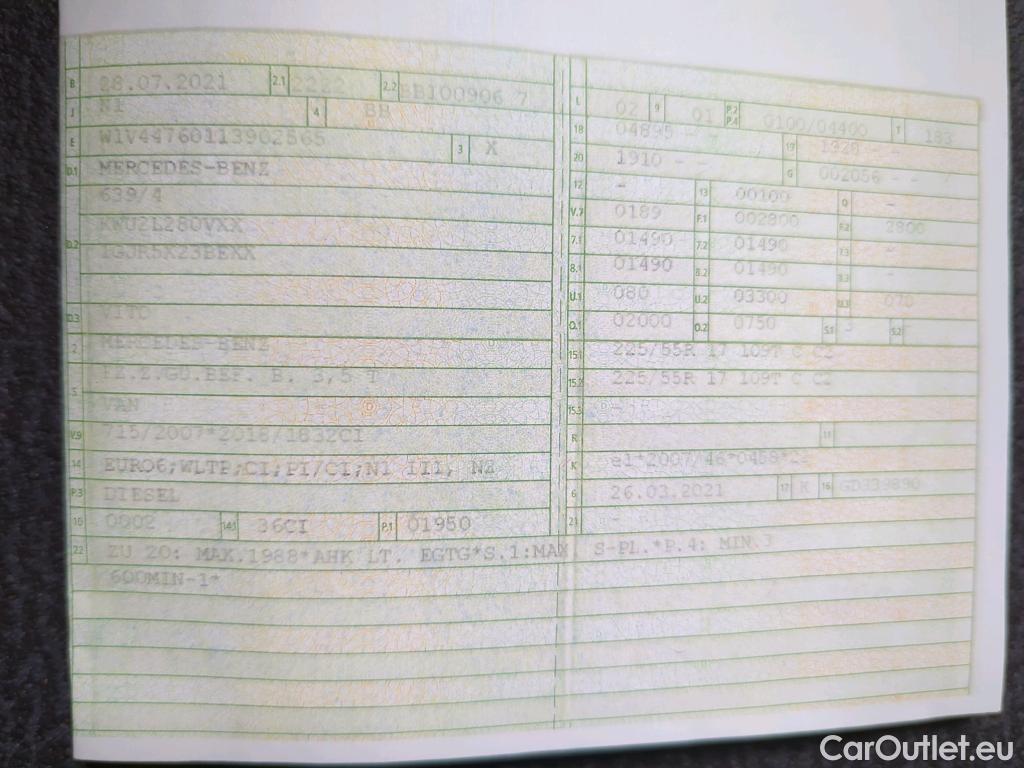 B 28.07.2021 2.1 2222 2.2 BB100906 7
J N1 4 BB
E W1V44760113902565 3 X
D.1 MERCEDES-BENZ
639/4
D.2 KWU2L280VXX
1GJR5X23BEXX
D.3 VITO
2 MERCEDES-BENZ
5 FZ.Z.GÜ.BEF. B. 3,5 T
VAN
V.9 715/2007*2018/1832CI
14 EURO6;WLTP;CI;PI/CI;N1 III, N2
P.3 DIESEL
10 0002 14.1 36CI P.1 01950
22 ZU 20: MAX.1988*AHK LT. EGTG*S.1:MAX. S-PL.*P.4: MIN.3
600MIN-1*
L 02 9 01 P.2 P.4 0100/04400 T 183
18 04895 - 19 1928 - -
20 1910 - - G 002056 - -
12 - 13 00100 Q -
V.7 0189 F.1 002800 F.2 2800
7.1 01490 7.2 01490 7.3 -
8.1 01490 8.2 01490 8.3 -
U.1 080 U.2 03300 U.3 070
O.1 02000 O.2 0750 S.1 3 S.2
15.1 225/55R 17 109T C C2
15.2 225/55R 17 109T C C2
15.3 -
R 11
K e1*2007/46*0458*
6 26.03.2021 17 K 16 GD339890
21 -
CarOutlet.eu